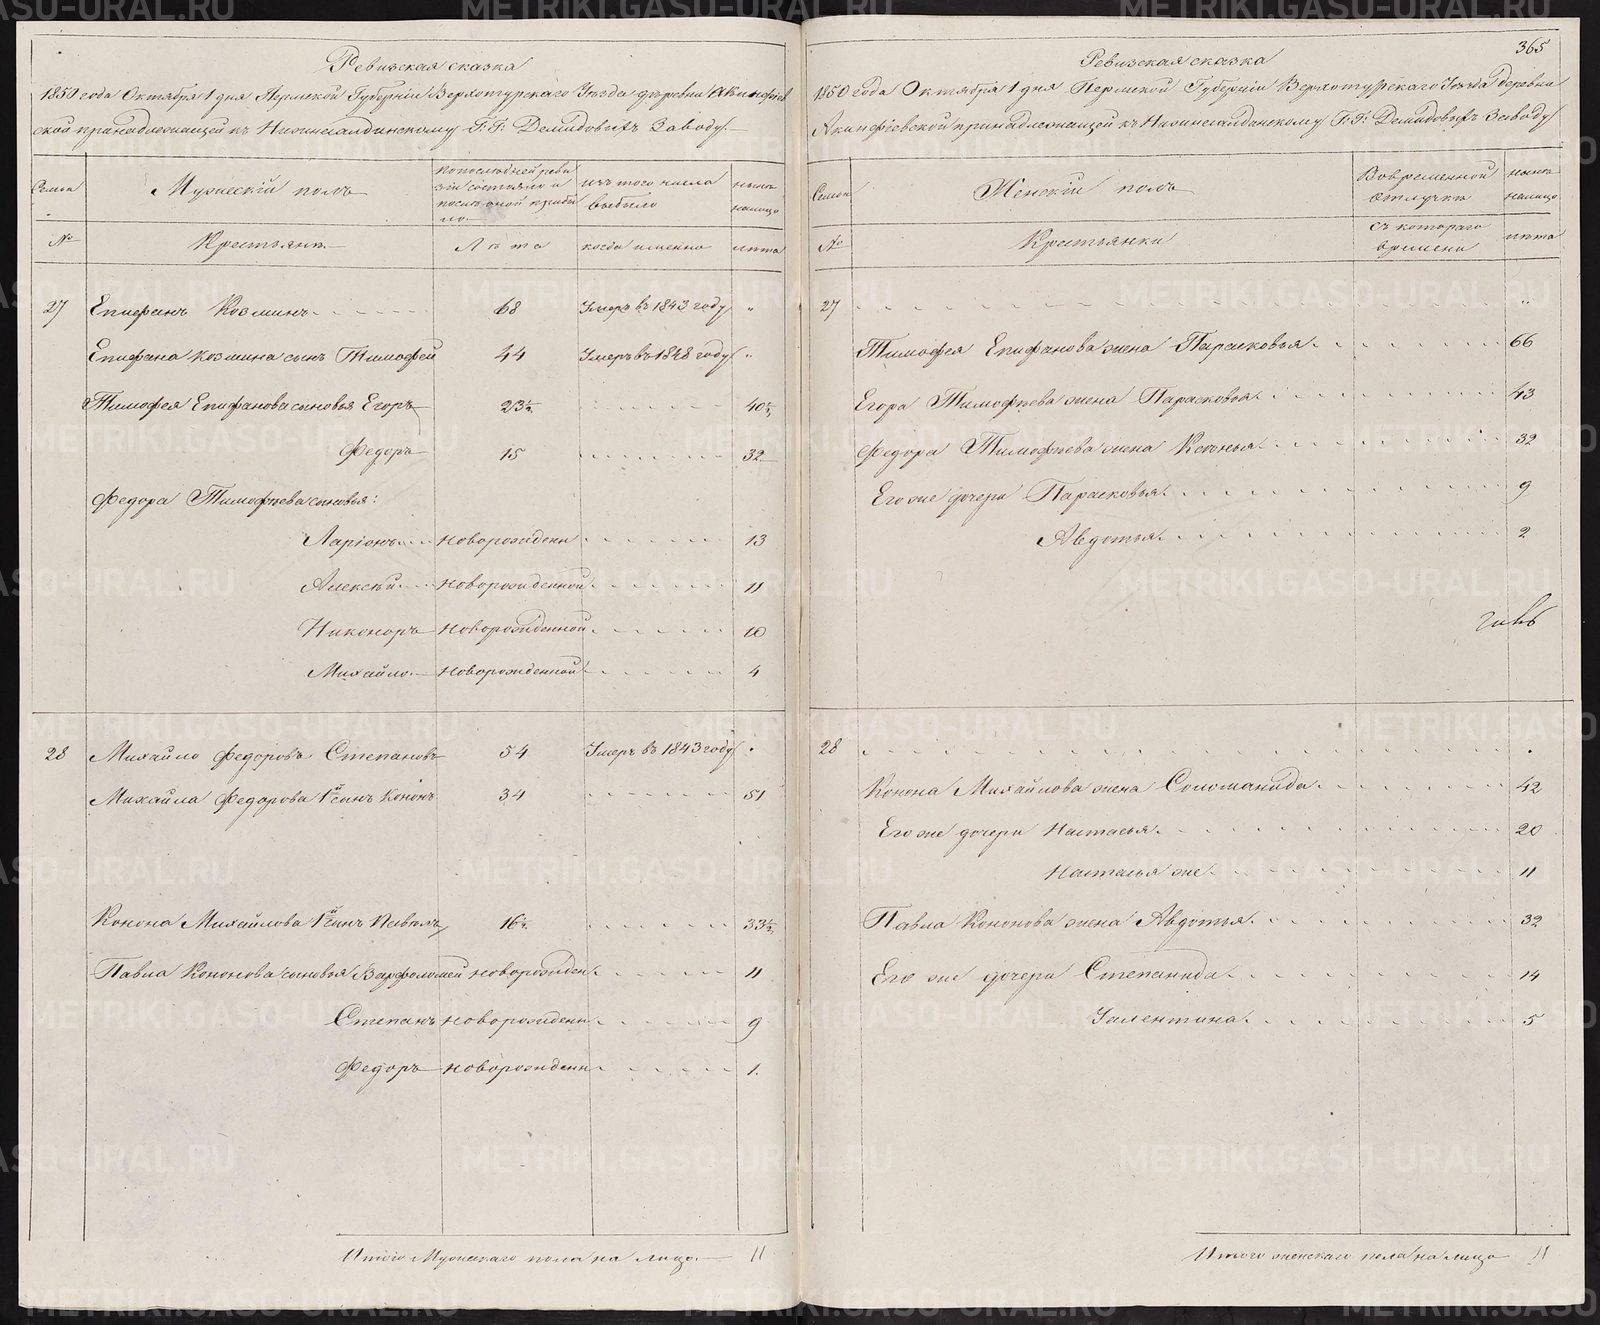 Ревизская сказка
1850 года Октября 1 дня Пермской Губерніи Верхотурскаго Уѣзда деревни Акинфіев
ской принадлежащей къ Нижнесалдинскому Г.Г. Демидовыхъ Заводу.
Семьи
Мужескій полъ
По последней реви
зіи состояло и
после оной прибы
ло
изъ того числа
выбыло
нынѣ
налицо
№
Крестьяне
Лѣта
когда именно
лѣта
27 Епифанъ Козминъ 68 Умеръ въ 1843 году "
Епифана Козмина сынъ Тимофей 44 Умеръ въ 1848 году "
Тимофея Епифанова сыновья Егоръ 23½ 40½
Федоръ 15 32
Федора Тимофѣева сыновья:
Ларіонъ новорожденн 13
Алексѣй новорожденной 11
Никоноръ новорожденной 10
Михайло новорожденной 4
28 Михайло Федоровъ Степановъ 54 Умеръ въ 1843 году "
Михайла Федорова 1й сынъ Кононъ 34 51
Конона Михайлова 1й сынъ Павелъ 16½ 33½
Павла Кононова сыновья Варфоломей новорожден 11
Степанъ новорожденн 9
Федоръ новорожденн 1
Итого Мужескаго пола на лицо 11
365
Ревизская сказка
1850 года Октября 1 дня Пермской Губерніи Верхотурскаго Уѣзда деревни
Акинфіевской принадлежащей къ Нижнесалдинскому Г.Г. Демидовыхъ Заводу
Семьи
Женскій полъ
Во временной
отлучкѣ
нынѣ
налицо
№
Крестьянки
съ котораго
времени
лѣта
27 "
Тимофея Епифанова жена Парасковья 66
Егора Тимофѣева жена Парасковья 43
Федора Тимофѣева жена Ксенья 32
Его же дочери Парасковья 9
Авдотья 2
28
Конона Михайлова жена Соломанида 42
Его же дочери Настасья 20
Настасья же 11
Павла Кононова жена Авдотья 32
Его же дочери Степанида 14
Уалентина 5
Итого женскаго пола на лицо 11
METRIKI.GASO-URAL.RU